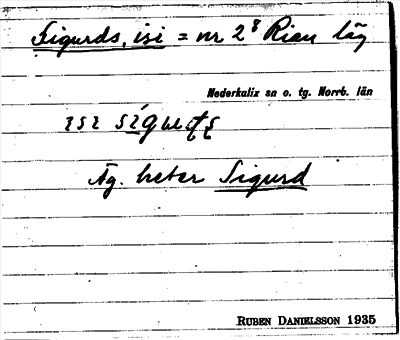 Sigurds, isi = nr 2⁸ Rian läg
Nederkalix sn o. tg. Norrb. län
ɪsɪ sigu
Äg. heter Sigurd
RUBEN DANIELSSON 1935